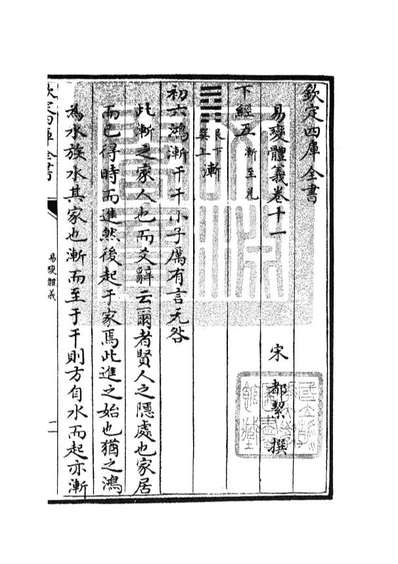 欽定四庫全書
易變體義卷十一 宋 都絜 撰
下經五 漸至兌
䷴ 艮下巽上 漸
初六鴻漸于干小子厲有言无咎
此漸之家人也而爻辭云爾者賢人之隱處也家居
而已得時而進然後起于家焉此進之始也猶之鴻
為水族水其家也漸而至于干則方自水而起亦漸
欽定四庫全書
易變體義